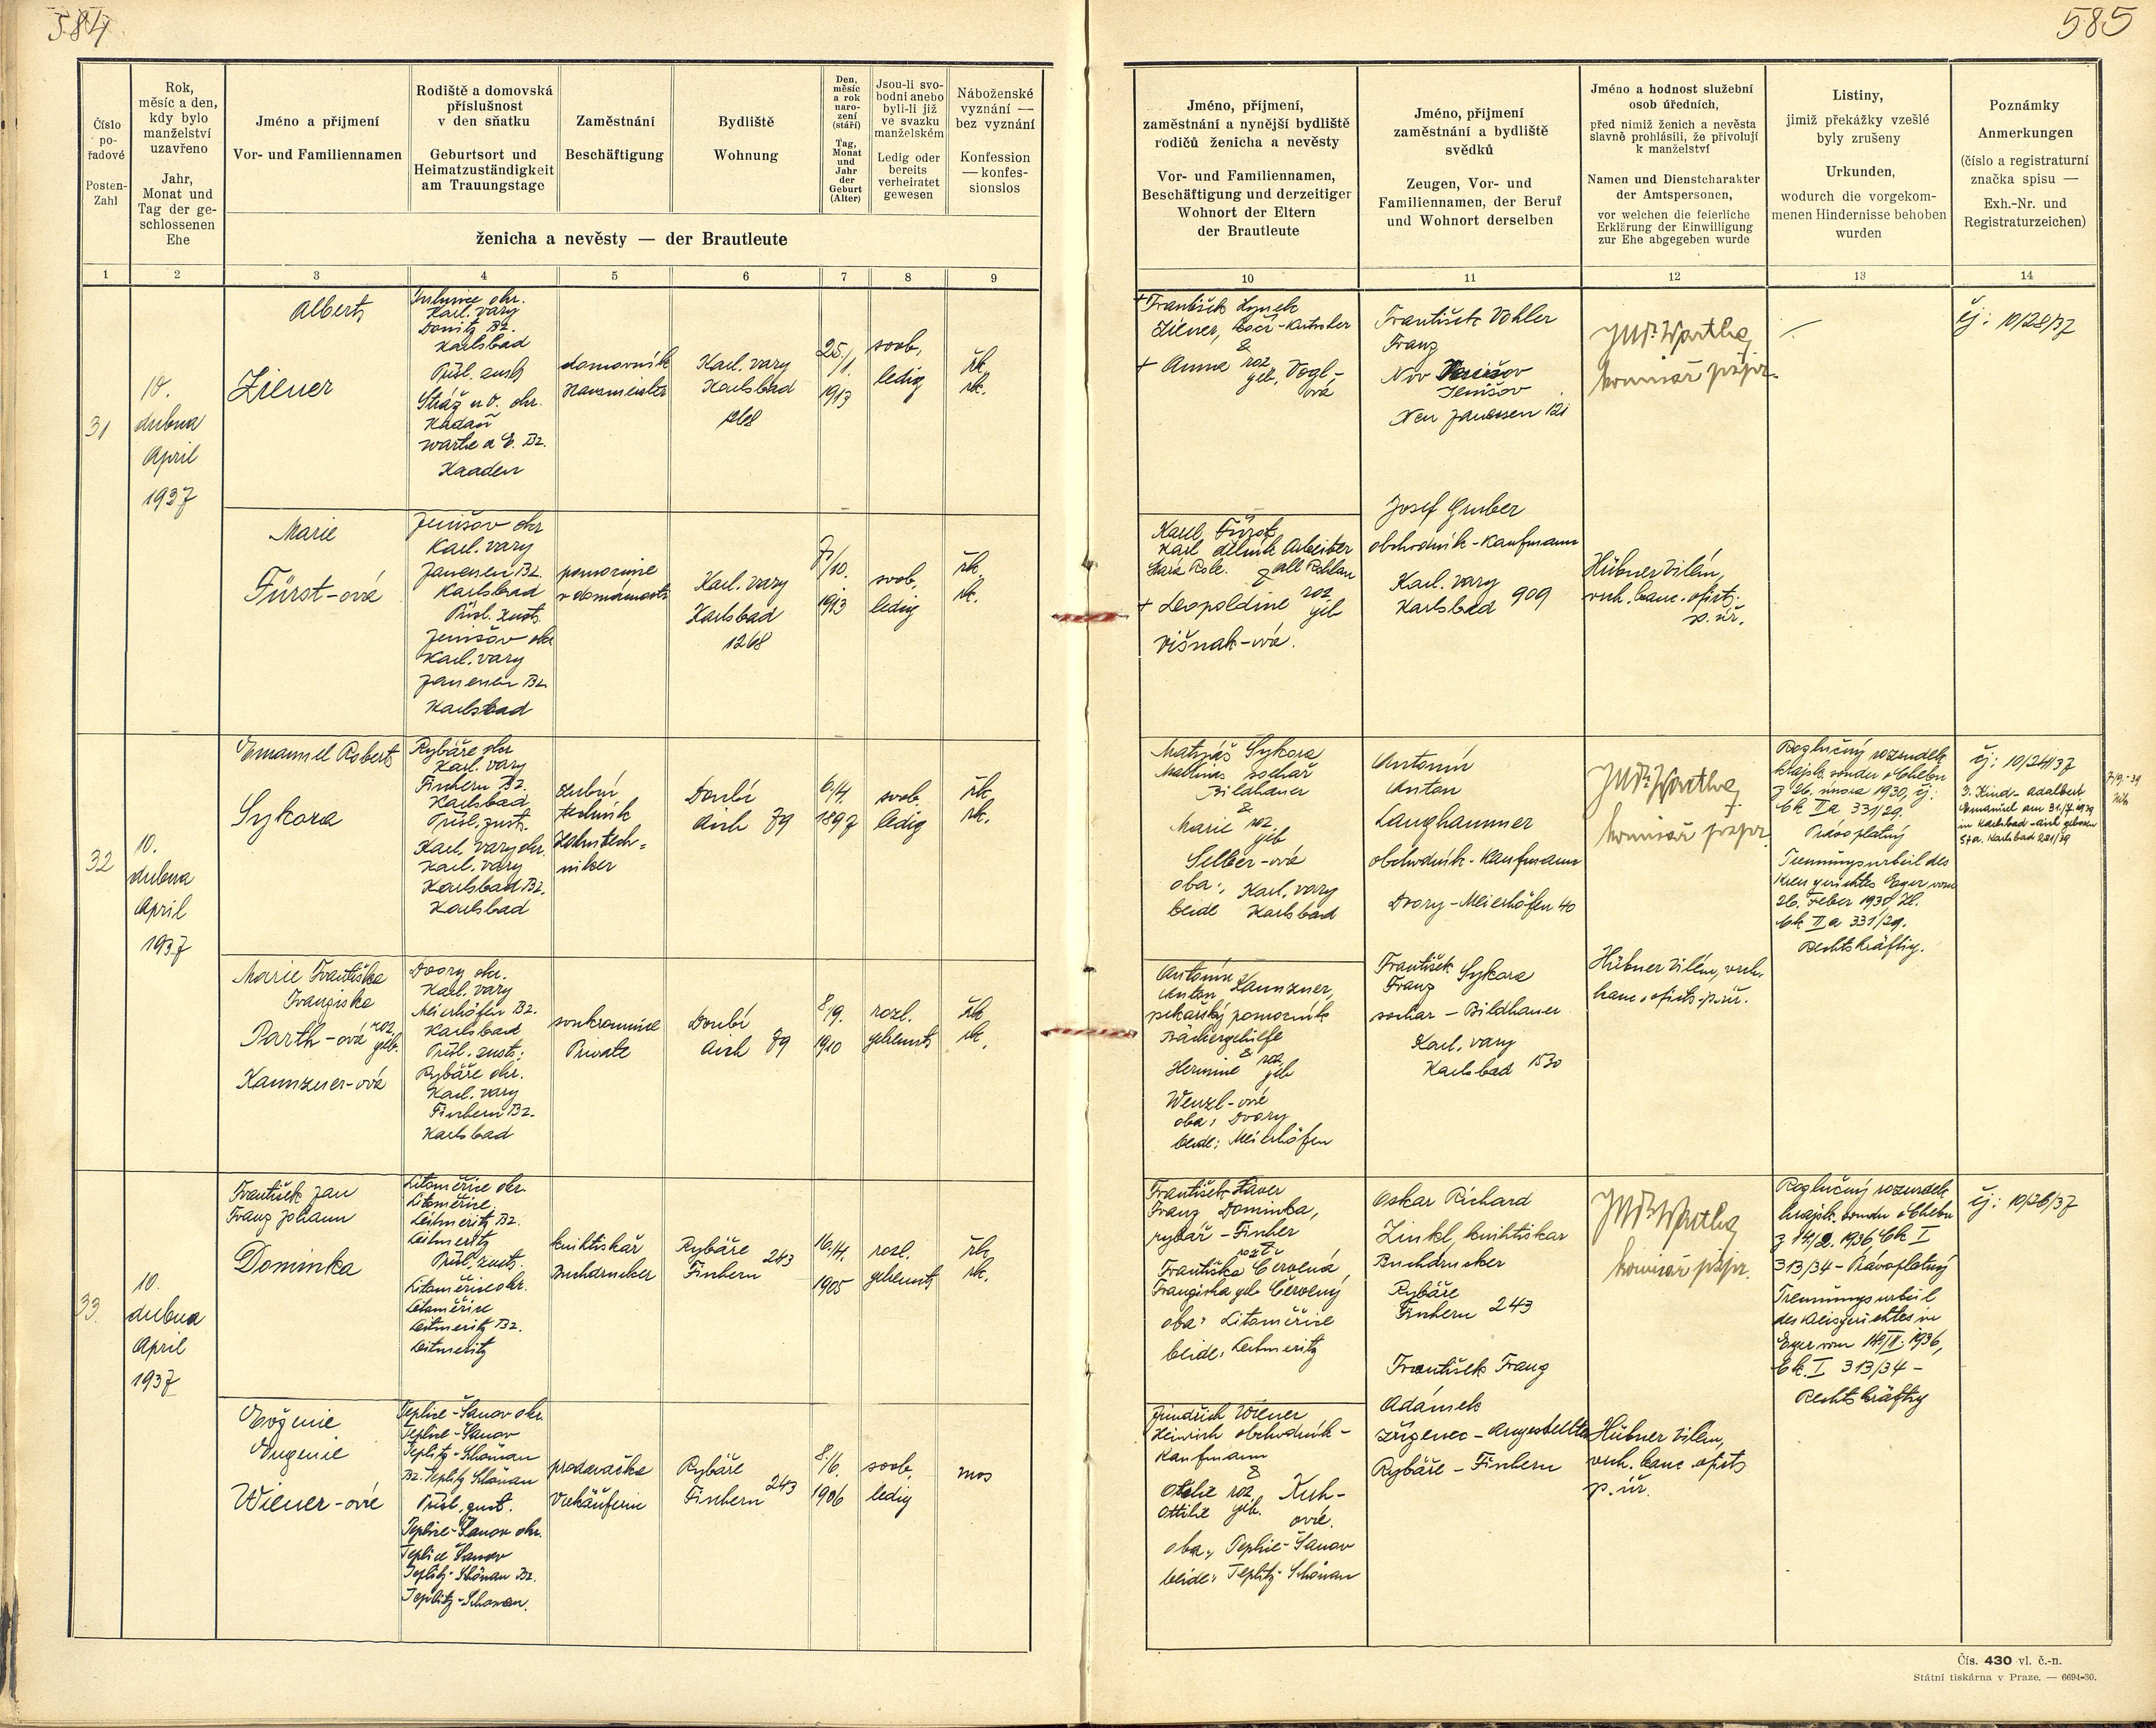 584
585
Číslo
po-
řadové
Posten-
Zahl
Rok,
měsíc a den,
kdy bylo
manželství
uzavřeno
Jahr,
Monat und
Tag der ge-
schlossenen
Ehe
Jméno a příjmení
Vor- und Familiennamen
Rodiště a domovská
příslušnost
v den sňatku
Geburtsort und
Heimatzuständigkeit
am Trauungstage
Zaměstnání
Beschäftigung
Bydliště
Wohnung
Den,
měsíc
a rok
naro-
zení
(stáří)
Tag,
Monat
und
Jahr
der
Geburt
(Alter)
Jsou-li svo-
bodni anebo
byli-li již
ve svazku
manželském
Ledig oder
bereits
verheiratet
gewesen
Náboženské
vyznání —
bez vyznání
Konfession
— konfes-
sionslos
ženicha a nevěsty — der Brautleute
Jméno, příjmení,
zaměstnání a nynější bydliště
rodičů ženicha a nevěsty
Vor- und Familiennamen,
Beschäftigung und derzeitiger
Wohnort der Eltern
der Brautleute
Jméno, příjmení
zaměstnání a bydliště
svědků
Zeugen, Vor- und
Familiennamen, der Beruf
und Wohnort derselben
Jméno a hodnost služební
osob úředních,
před nimiž ženich a nevěsta
slavně prohlásili, že přivolují
k manželství
Namen und Dienstcharakter
der Amtspersonen,
vor welchen die feierliche
Erklärung der Einwilligung
zur Ehe abgegeben wurde
Listiny,
jimiž překážky vzešlé
byly zrušeny
Urkunden,
wodurch die vorgekom-
menen Hindernisse behoben
wurden
Poznámky
Anmerkungen
(číslo a registraturní
značka spisu —
Exh.-Nr. und
Registraturzeichen)
1 2 3 4 5 6 7 8 9 10 11 12 13 14
31
10.
dubna
April
1937
Albert
Ziener
okr.
Karl. vary
Donitz Bz.
Karlsbad
Přísl. zust.
Stráž n. O. okr.
Kadaň
Wartie a E. Bz.
Kaaden
domovník
Hausmeister
Karl. vary
Karlsbad
1268
25./1.
1913
svob,
ledig
řk,
rk.
+ František
Ziener, kočí - Kutscher
&
+ Anna roz. geb. Vogl-
ová
František Vohler
Franz
Nov
Jenišov
Neu Janessen 121
JUDr. Wartha,
komisař
čj: 10/28/37
Marie
Fürst-ová
Jenišov okr
Karl. vary
Janessen Bz.
Karlsbad
Přísl. zust.
Jenišov okr
Karl. vary
Janessen Bz.
Karlsbad
pomocnice
v domácnosti
Karl. vary
Karlsbad
1268
7./10.
1913
svob,
ledig
řk,
rk.
Karel Fürst
Karl dělník Arbeiter
Stará Role. Alt Rohlau
&
+ Leopoldine roz. geb
Višnak-ová.
Josef Gruber
obchodník - Kaufmann
Karl. vary
Karlsbad 909
Hübner Vilém,
vrch. kanc. ofict.
p. úř.
32
10.
dubna
April
1937
Emanuel Robert
Sykora
Rybáře okr
Karl. vary
Fischern Bz.
Karlsbad
Přísl. zust.
Karl. vary okr.
Karl. vary
Karlsbad Bz.
Karlsbad
zubní
technik
Zahntech-
niker
Doubí
Aich 79
6./4.
1897
svob.
ledig
řk.
rk.
Matyáš Sykora
Mathias sochař
Bildhauer
&
Marie roz. geb
Selber-ová
oba: Karl. vary
beide Karlsbad
Antonín
Anton
Langhammer
obchodník - Kaufmann
Dvory - Meierhöfen 40
JUDr. Wartha,
komisař
Rozlučný rozsudek
krajsk. soudu v Chebu
z 26. února 1930, čj:
Ck II a 331/29.
Právoplatný
Trennungsurteil des
Kreisgerichtes Eger vom
26. Feber 1930, Zl.
Ck II a 331/29.
Rechtskräftig.
čj: 10/24/37
Kind - Adalbert
Emanuel am 31/7 1939
in Karlsbad - Aich geboren
Sta. Karlsbad 221/39
Marie Františka
Franziska
Parth-ová roz. geb.
Kaunzner-ová
Dvory okr.
Karl. vary
Meierhöfen Bz.
Karlsbad
Přísl. zust:
Rybáře okr.
Karl. vary
Fischern Bz.
Karlsbad
soukromnice
Private
Doubí
Aich 79
8./9.
1910
rozl.
getrennt
řk
rk.
Antonín
Anton Kaunzner,
pekařský pomocník
Bäckergehilfe
&
Hermine roz. geb
Wenzl-ové
oba: Dvory
beide: Meierhöfen
František
Franz Sykora
sochar - Bildhauer
Karl. vary
Karlsbad 1530
Hübner Vilém, vrch.
kanc. ofict. p. úř.
33
10.
dubna
April
1937
František Jan
Franz Johann
Dominka
Litoměřice okr.
Litoměřice
Leitmeritz Bz.
Leitmeritz
Přísl. zust.
Litoměřice okr.
Litoměřice
Leitmeritz Bz.
Leitmeritz
knihtiskař
Buchdrucker
Rybáře
Fischern 243
16./4.
1905
rozl.
getrennt
řk,
rk.
František Xaver
Franz Dominka,
rybář - Fischer
Františka roz. Červená,
Franziska geb Červený
oba: Litoměřice
beide: Leitmeritz
Oskar Richard
Zinkl, knihtiskar
Buchdrucker
Rybáře
Fischern 243
JUDr. Wartha,
komisař
Rozlučný rozsudek
krajsk. soudu v Chebu
z 14/2. 1936, Ck I
313/34 - Právoplatný
Trennungsurteil
des Kreisgerichtes in
Eger vom 14/II. 1936,
Ck. I 313/34 -
Rechtskräftig
čj: 10/26/37
Evženie
Eugenie
Wiener-ové
Teplice-Šanov okr.
Teplice-Šanov
Teplitz-Schönau
Bz. Teplitz Schönau
Přísl. zust.
Teplice-Šanov okr.
Teplice Šanov
Teplitz-Schönau Bz.
Teplitz-Schönau.
prodavačka
Verkäuferin
Rybáře
Fischern 243
8./6.
1906
svob,
ledig
mos
Jindřich Wiener
Heinrich obchodník -
Kaufmann
&
Otelie roz. Kuh-
Ottilie geb. ové.
oba: Teplice-Šanov
beide: Teplitz-Schönau
František Franz
Adámek
zřízenec - Angestellter
Rybáře - Fischern
Hübner Vilém,
vrch. kanc. ofict
p. úř.
Čís. 430 vl. č.-n.
Státní tiskárna v Praze. — 6694-30.